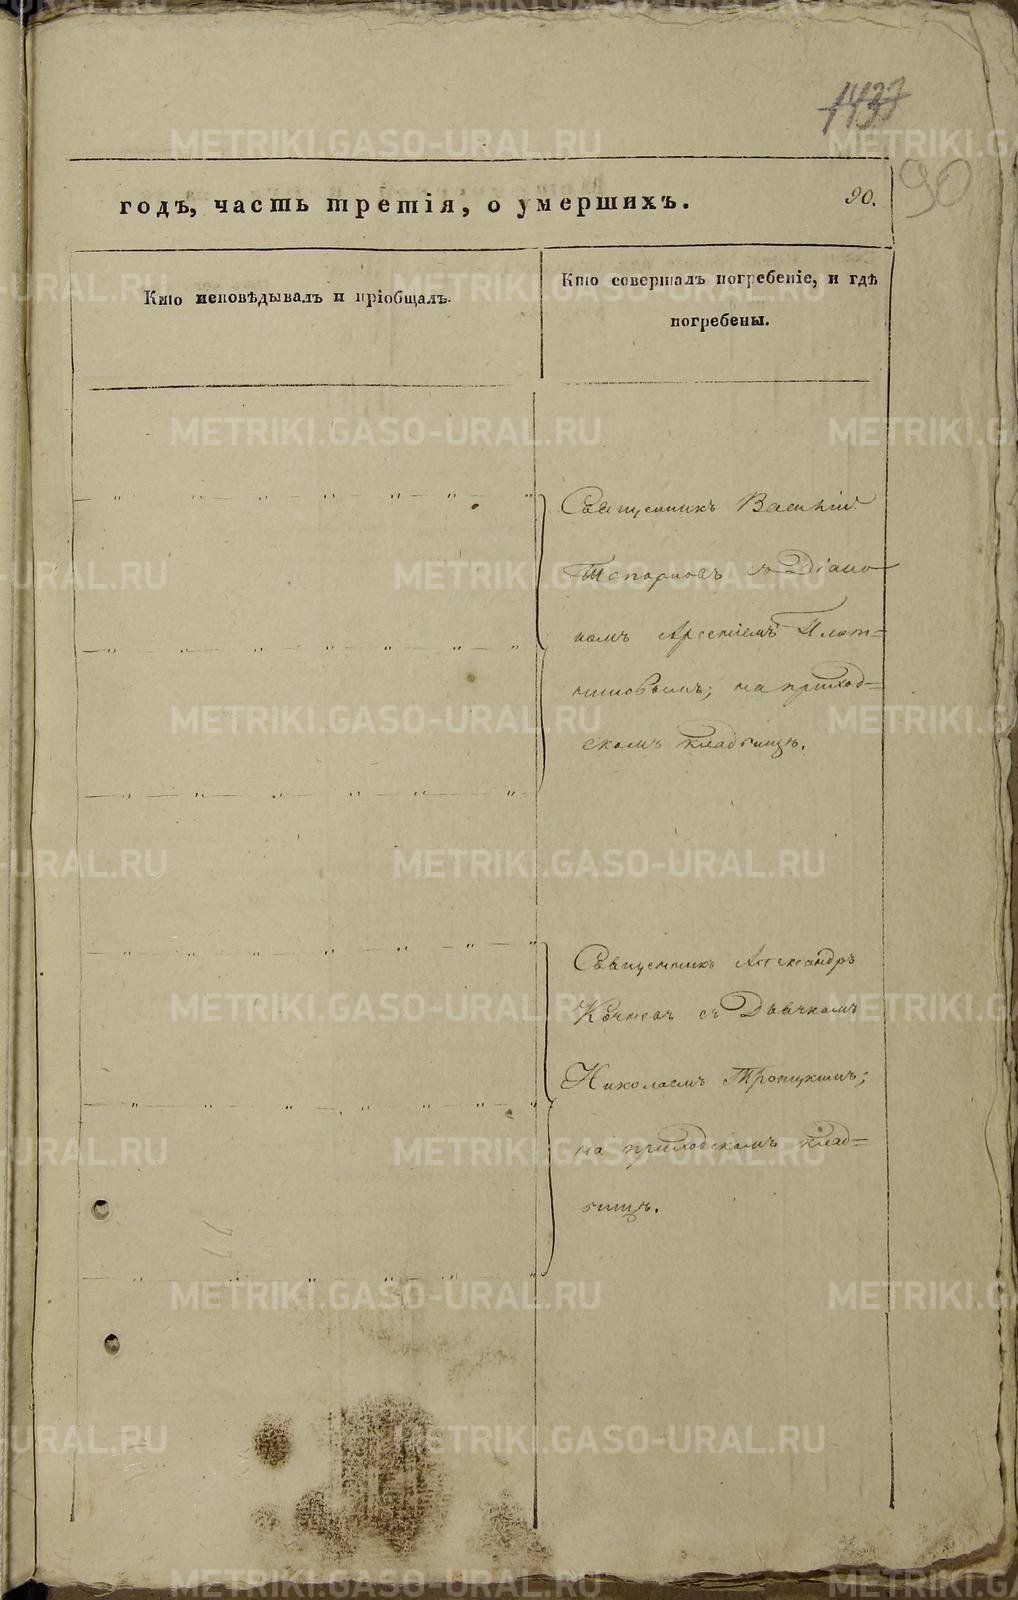 1437
90
годъ, часть третія, о умершихъ.
90.
Кто исповѣдывалъ и пріобщалъ.
Кто совершалъ погребеніе, и гдѣ
погребены.
Священникъ Василій
Топорковъ съ Діако
номъ Арсеніемъ Плот=
никовымъ; на приход=
скомъ кладбищѣ.
Священникъ Александръ
съ Дьячкомъ
Николаемъ Троицкимъ;
на приходскомъ клад=
бищѣ.
METRIKI.GASO-URAL.RU